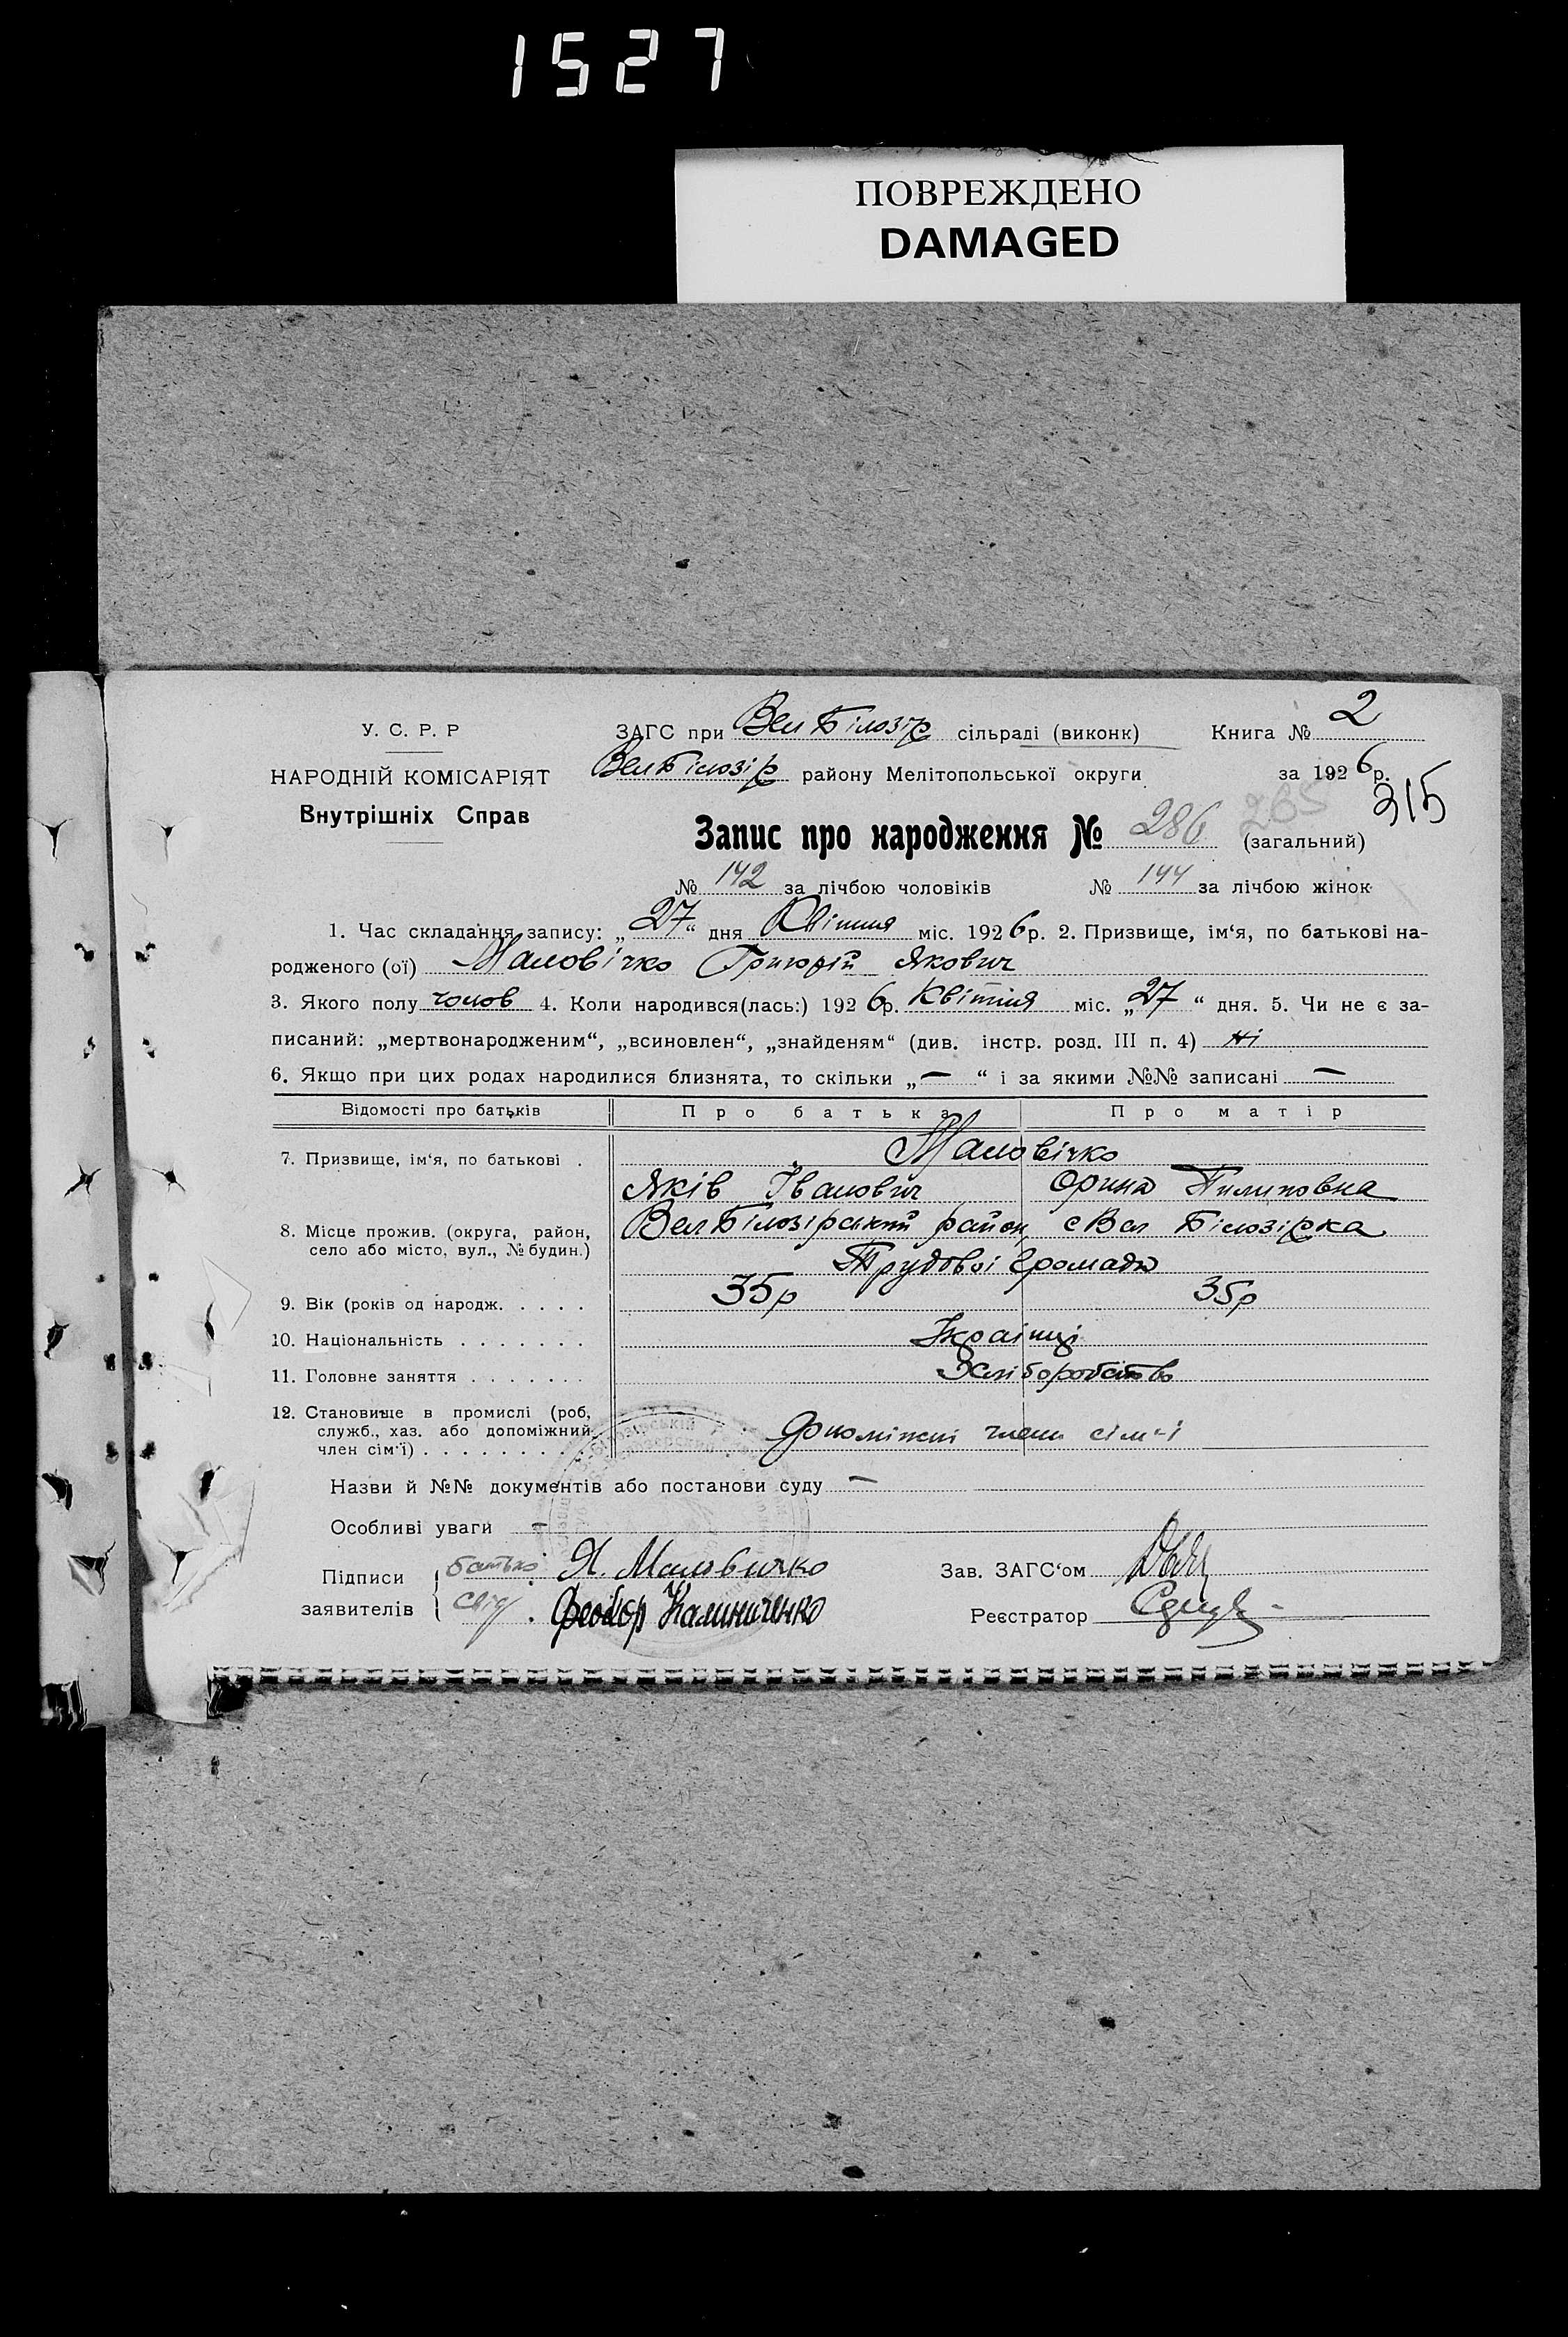 1527
ПОВРЕЖДЕНО
DAMAGED
У. С. Р. Р
НАРОДНІЙ КОМІСАРІЯТ
Внутрішніх Справ
ЗАГС при Вел Білозір сільраді (виконк) Книга № 2
Вел Білозір району Мелітопольської округи за 1926 р.
315
Запис про народження № 286 285 (загальний)
№ 142 за лічбою чоловіків № 144 за лічбою жінок
1. Час складання запису: „27“ дня Квітня міс. 1926 р. 2. Призвище, ім‘я, по батькові на-
родженого (ої) Маловічко Григорій Якович
3. Якого полу чолов 4. Коли народився(лась:) 1926 р. Квітня міс. „27“ дня. 5. Чи не є за-
писаний: „мертвонародженим“, „всиновлен“, „знайденям“ (див. інстр. розд. III п. 4) ні
6. Якщо при цих родах народилися близнята, то скільки „—“ і за якими №№ записані —
Відомості про батьків Про батька Про матір
7. Призвище, ім‘я, по батькові . Маловічко
Яків Іванович Орина Пилиповна
8. Місце прожив. (округа, район, село або місто, вул., № будин.) Вел Білозірський район, с Вел Білозірка
Трудової громади
9. Вік (років од народж. . . . . 35р 35р
10. Національність . . . . . . . Українці
11. Головне заняття . . . . . . . Хліборобство
12. Становище в промислі (роб,
служб., хаз. або допоміжний
член сім‘ї) . . . . . . . . . Допоміжні члени сім‘ї
Назви й №№ документів або постанови суду —
Особливі уваги —
Підписи заявителів { батько Я. Маловичко
свід. Феодор Калиниченко
Зав. ЗАГС‘ом
Реєстратор